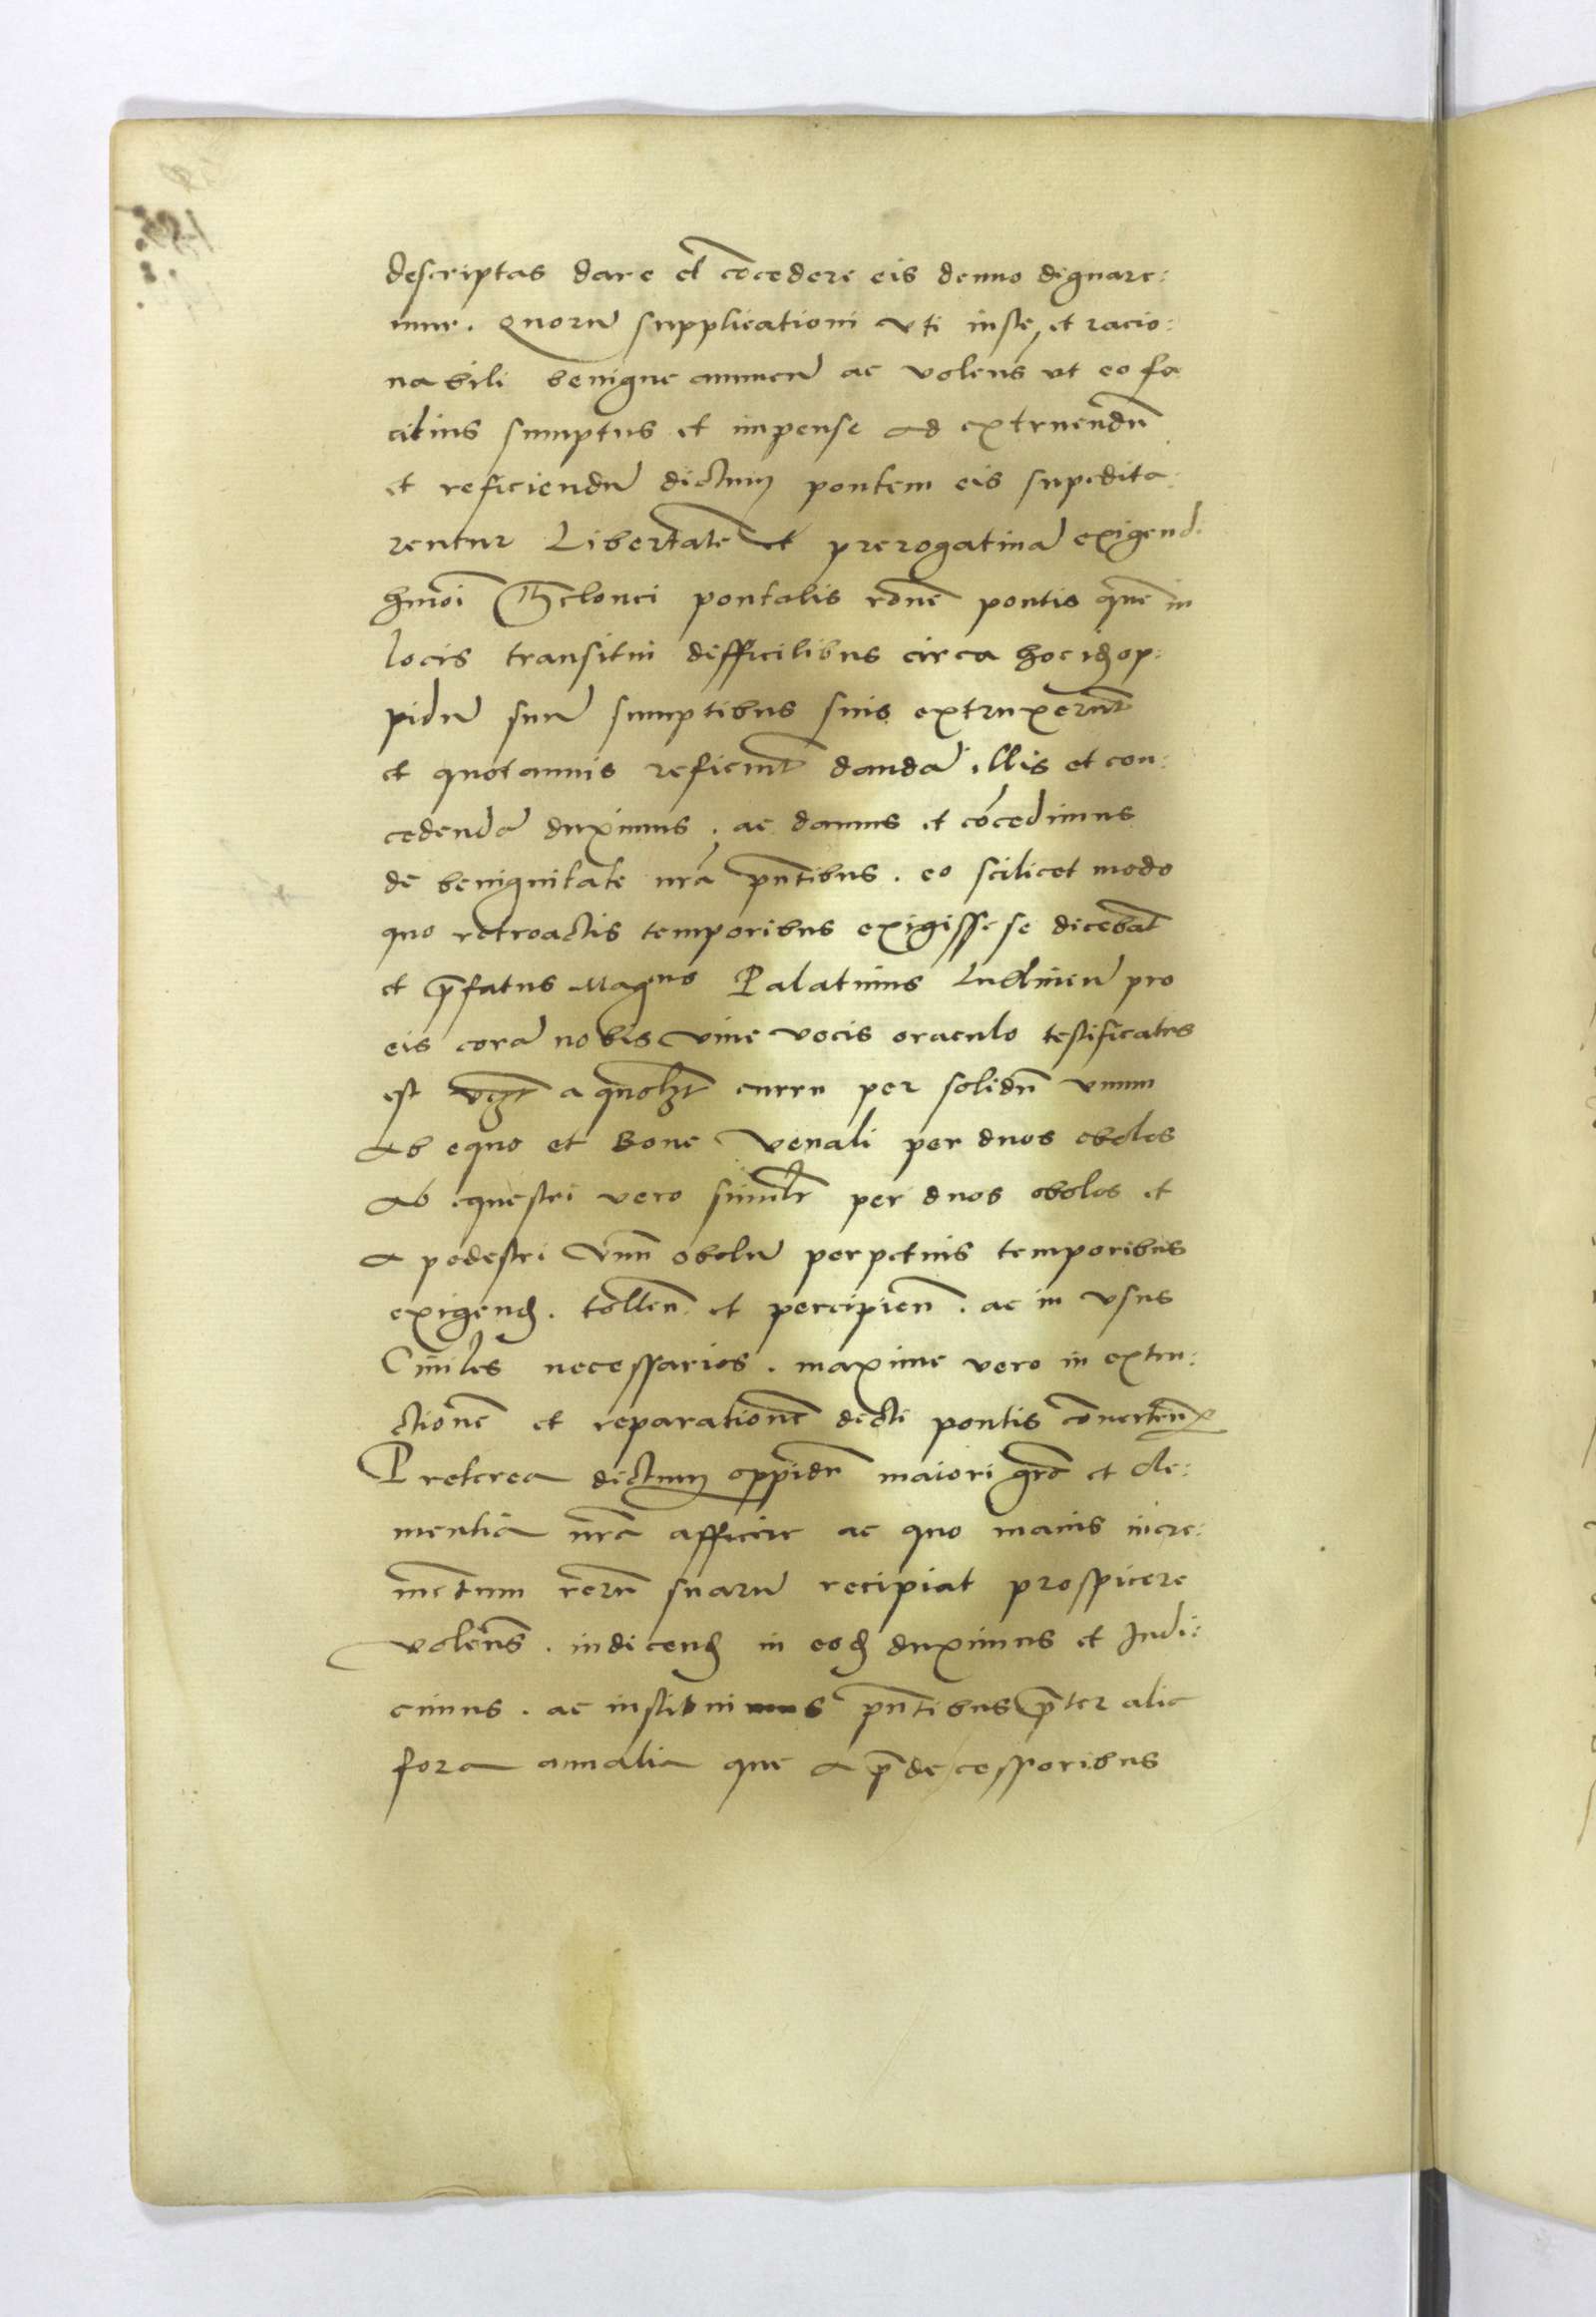 descriptas dare et cōcedere eis denuo dignare:
mur. Quorū supplicationi uti iuste et racio:
nabili benigne annuen̄ ac volens ut eo fa
cilius sumptus et impense ad extruendū
et reficiendū dictum pontem eis supedita:
rentur Libertatē et prerogatiuā exigend.
hmōi Thelonei pontalis rōne pontis quē in
locis transitui difficilibus circa hoc idē op:
pidū suū sumptibus suis extruxerūt
et quotannis reficiūt dandā illis et con:
cedendā duximus. ac damus et cōcedimus
de benignitate nrā pn̄tibus. eo scilicet modo
quo retroactis temporibus exigisse se dicebāt
et p̄fatus Magcus Palatinus pro
eis corā nobis viue vocis oraculo testificatus
est vz a quolzt curru per solidū unum
Ab equo et Boue Venali per duos obolos
Ab equestri vero similr̄ per duos obolos et
a pedestri Vnū obolū perpetuis temporibus
exigend. tollen̄. et percipien̄. ac in usus
Ciuiles necessarios. maxime vero in extru:
ctionē et reparationē dicti pontis cōuerten̄
Preterea dictum oppidū maiori grā et cle:
mentiā nrā afficere ac quo maius incre:
mētum rerū suarū recipiat prospicere
volens̄. indicend in eod duximus et Indi:
cimus. ac instituimus pn̄tibus p̄ter alia
fora annalia que a p̄decessoribus